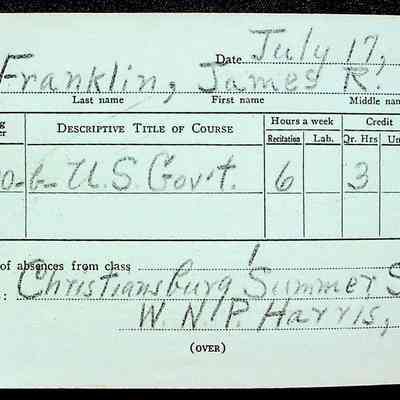 Date July 17,
Franklin, James R.
Last name First name Middle nam
g
er Descriptive Title of Course Hours a week Credit
Recitation Lab. Qr. Hrs Un
0-6- U.S. Gov't. 6 3
of absences from class 1
: Christiansburg Summer S
W. N. P. Harris,
(OVER)